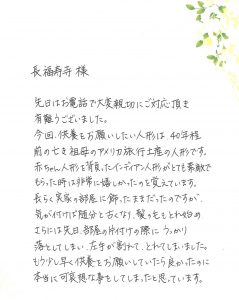 長福寿寺 様
先日はお電話で大変親切にご対応頂き
有難うございました。
今回、供養をお願いしたい人形は 40年程
前の亡き祖母のアメリカ旅行土産の人形です。
赤ちゃん人形を背負ったインディアン人形がとても素敵で
もらった時は非常に嬉しかったのを覚えています。
長らく実家の部屋に飾ったままだったのですが、
気が付けば随分と古くなり、髪の毛もとれ始め
さらには先日、部屋の片付けの際に うっかり
落としてしまい、左手が割れて、とれてしまいました。
もう少し早く供養をお願いしていたら良かったのに
本当に可哀想な事をしてしまったと思っています。